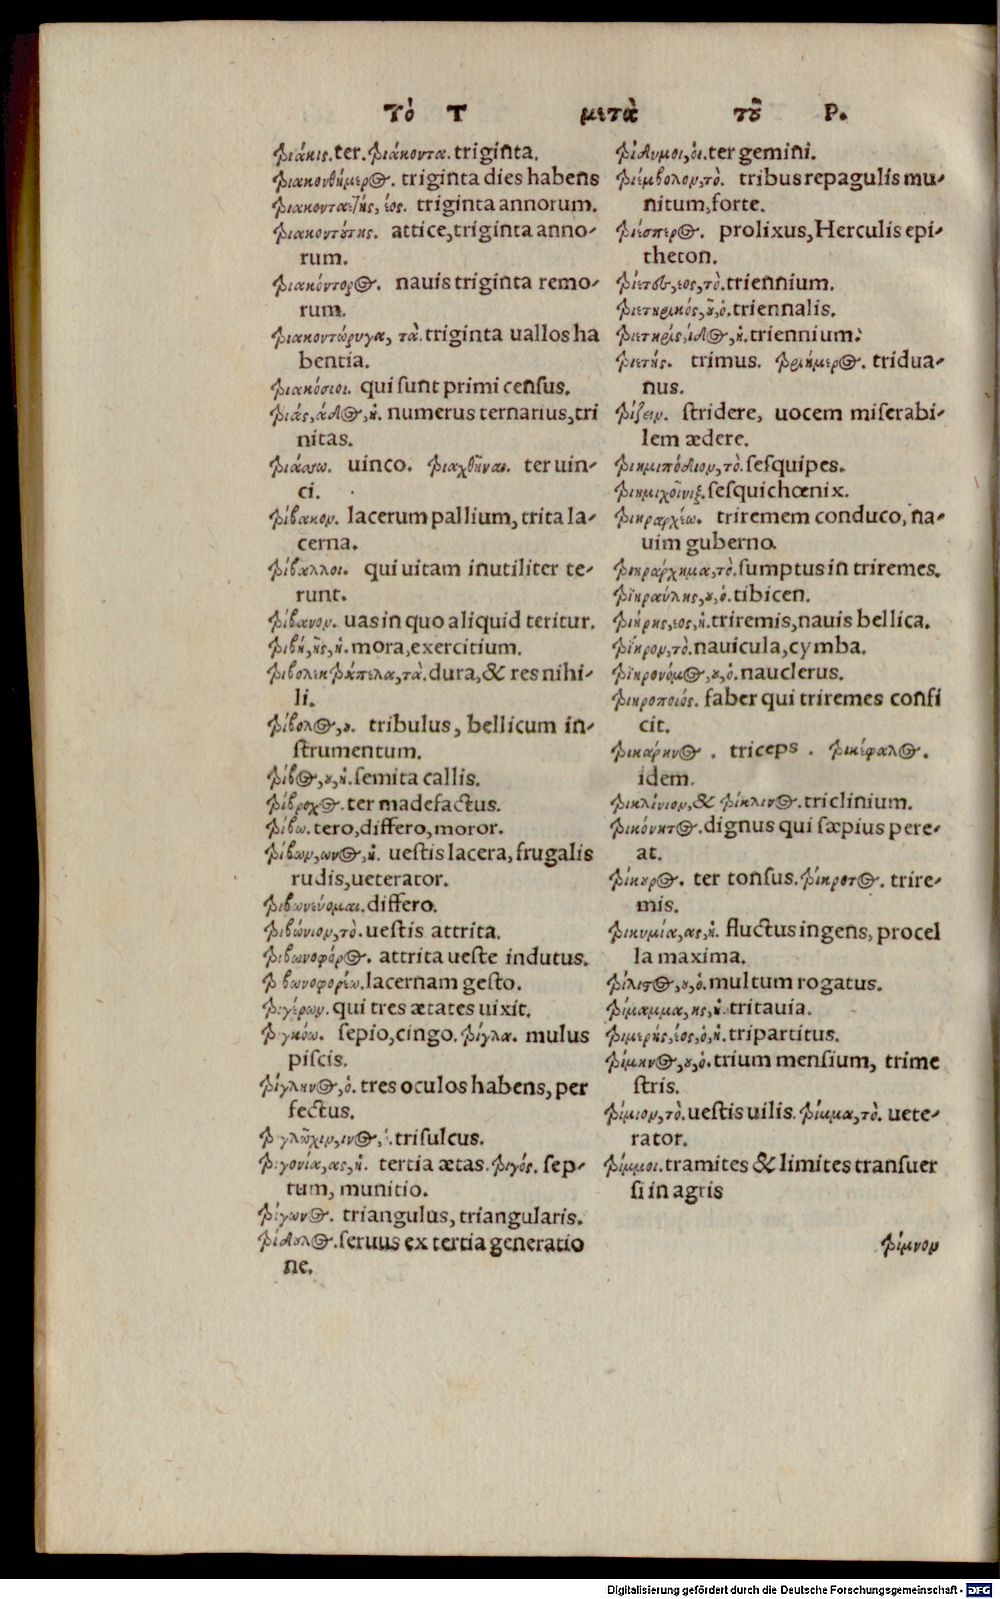 Τὸ Τ μετὰ τοῦ Ρ.
τριάκις. ter. τριάκοντα. triginta.
τριακονθήμερος. triginta dies habens
τριακονταετὴς, έος. triginta annorum.
τριακοντούτης. attice, triginta anno-
rum.
τριακόντορος. nauis triginta remo-
rum.
τριακοντώρυγα, τὰ. triginta uallos ha
bentia.
τριακόσιοι. qui sunt primi census.
τριὰς, άδος, ἡ. numerus ternarius, tri
nitas.
τριάσσω. uinco. τριαχθῆναι. ter uin-
ci.
τρίβακον. lacerum pallium, trita la-
cerna.
τρίβαλλοι. qui uitam inutiliter te-
runt.
τρίβανον. uas in quo aliquid teritur.
τριβὴ, ῆς, ἡ. mora, exercitium.
τριβολεκτράπελα, τὰ. dura, & res nihi-
li.
τρίβολος, ου. tribulus, bellicum in-
strumentum.
τρίβος, ου, ἡ. semita callis.
τρίβροχος. ter madefactus.
τρίβω. tero, differo, moror.
τρίβων, ωνος, ἡ. uestis lacera, frugalis
rudis, ueterator.
τριβωνεύομαι. differo.
τριβώνιον, τὸ. uestis attrita.
τριβωνοφόρος. attrita ueste indutus.
τριβωνοφορέω. lacernam gesto.
τριγέρων. qui tres ætates uixit.
τριγκόω. sepio, cingo. τρίγλα. mulus
piscis.
τρίγλην, ὁ. tres oculos habens, per
fectus.
τριγλῶχιν, ινος, ὁ. trisulcus.
τριγονία, ας, ἡ. tertia ætas. τριγός. sep-
tum, munitio.
τρίγωνος. triangulus, triangularis.
τρίδουλος. seruus ex tertia generatio
ne.
τρίδυμοι, οἱ. ter gemini.
τριέμβολον, τὸ. tribus repagulis mu-
nitum, forte.
τριέσπερος. prolixus, Herculis epi-
theton.
τρίετος, εος, τὸ. triennium.
τριετηρικός, οῦ, ὁ. triennalis.
τριετηρὶς, ίδος, ἡ. triennium.
τριετής. trimus. τριήμερος. tridua-
nus.
τρίζειν. stridere, uocem miserabi-
lem ædere.
τριημιπόδιον, τὸ. sesquipes.
τριημιχοῖνιξ. sesquichœnix.
τριηραρχέω. triremem conduco, na-
uim guberno.
τριηράρχημα, τὸ. sumptus in triremes.
τριηραύλης, ου, ὁ. tibicen.
τριήρης, εος, ἡ. triremis, nauis bellica.
τριῆρον, τὸ. nauicula, cymba.
τριηρονόμος, ου, ὁ. nauclerus.
τριηροποιός. faber qui triremes confi
cit.
τρικάρηνος. triceps. τρικέφαλος.
idem.
τρικλίνιον, & τρίκλινος. triclinium.
τρικόνητος. dignus qui sæpius pere-
at.
τρίκουρος. ter tonsus. τρίκροτος. trire-
mis.
τρικυμία, ας, ἡ. fluctus ingens, procel
la maxima.
τρίλιστος, ου, ὁ. multum rogatus.
τρίμαμμα, ης, ἡ. tritauia.
τριμερής, έος, ὁ, ἡ. tripartitus.
τρίμηνος, ου, ὁ. trium mensium, trime
stris.
τρίμιον, τὸ. uestis uilis. τρίμμα, τὸ. uete-
rator.
τρίμμοι. tramites & limites transuer
si in agris
τρίμνον
Digitalisierung gefördert durch die Deutsche Forschungsgemeinschaft - DFG